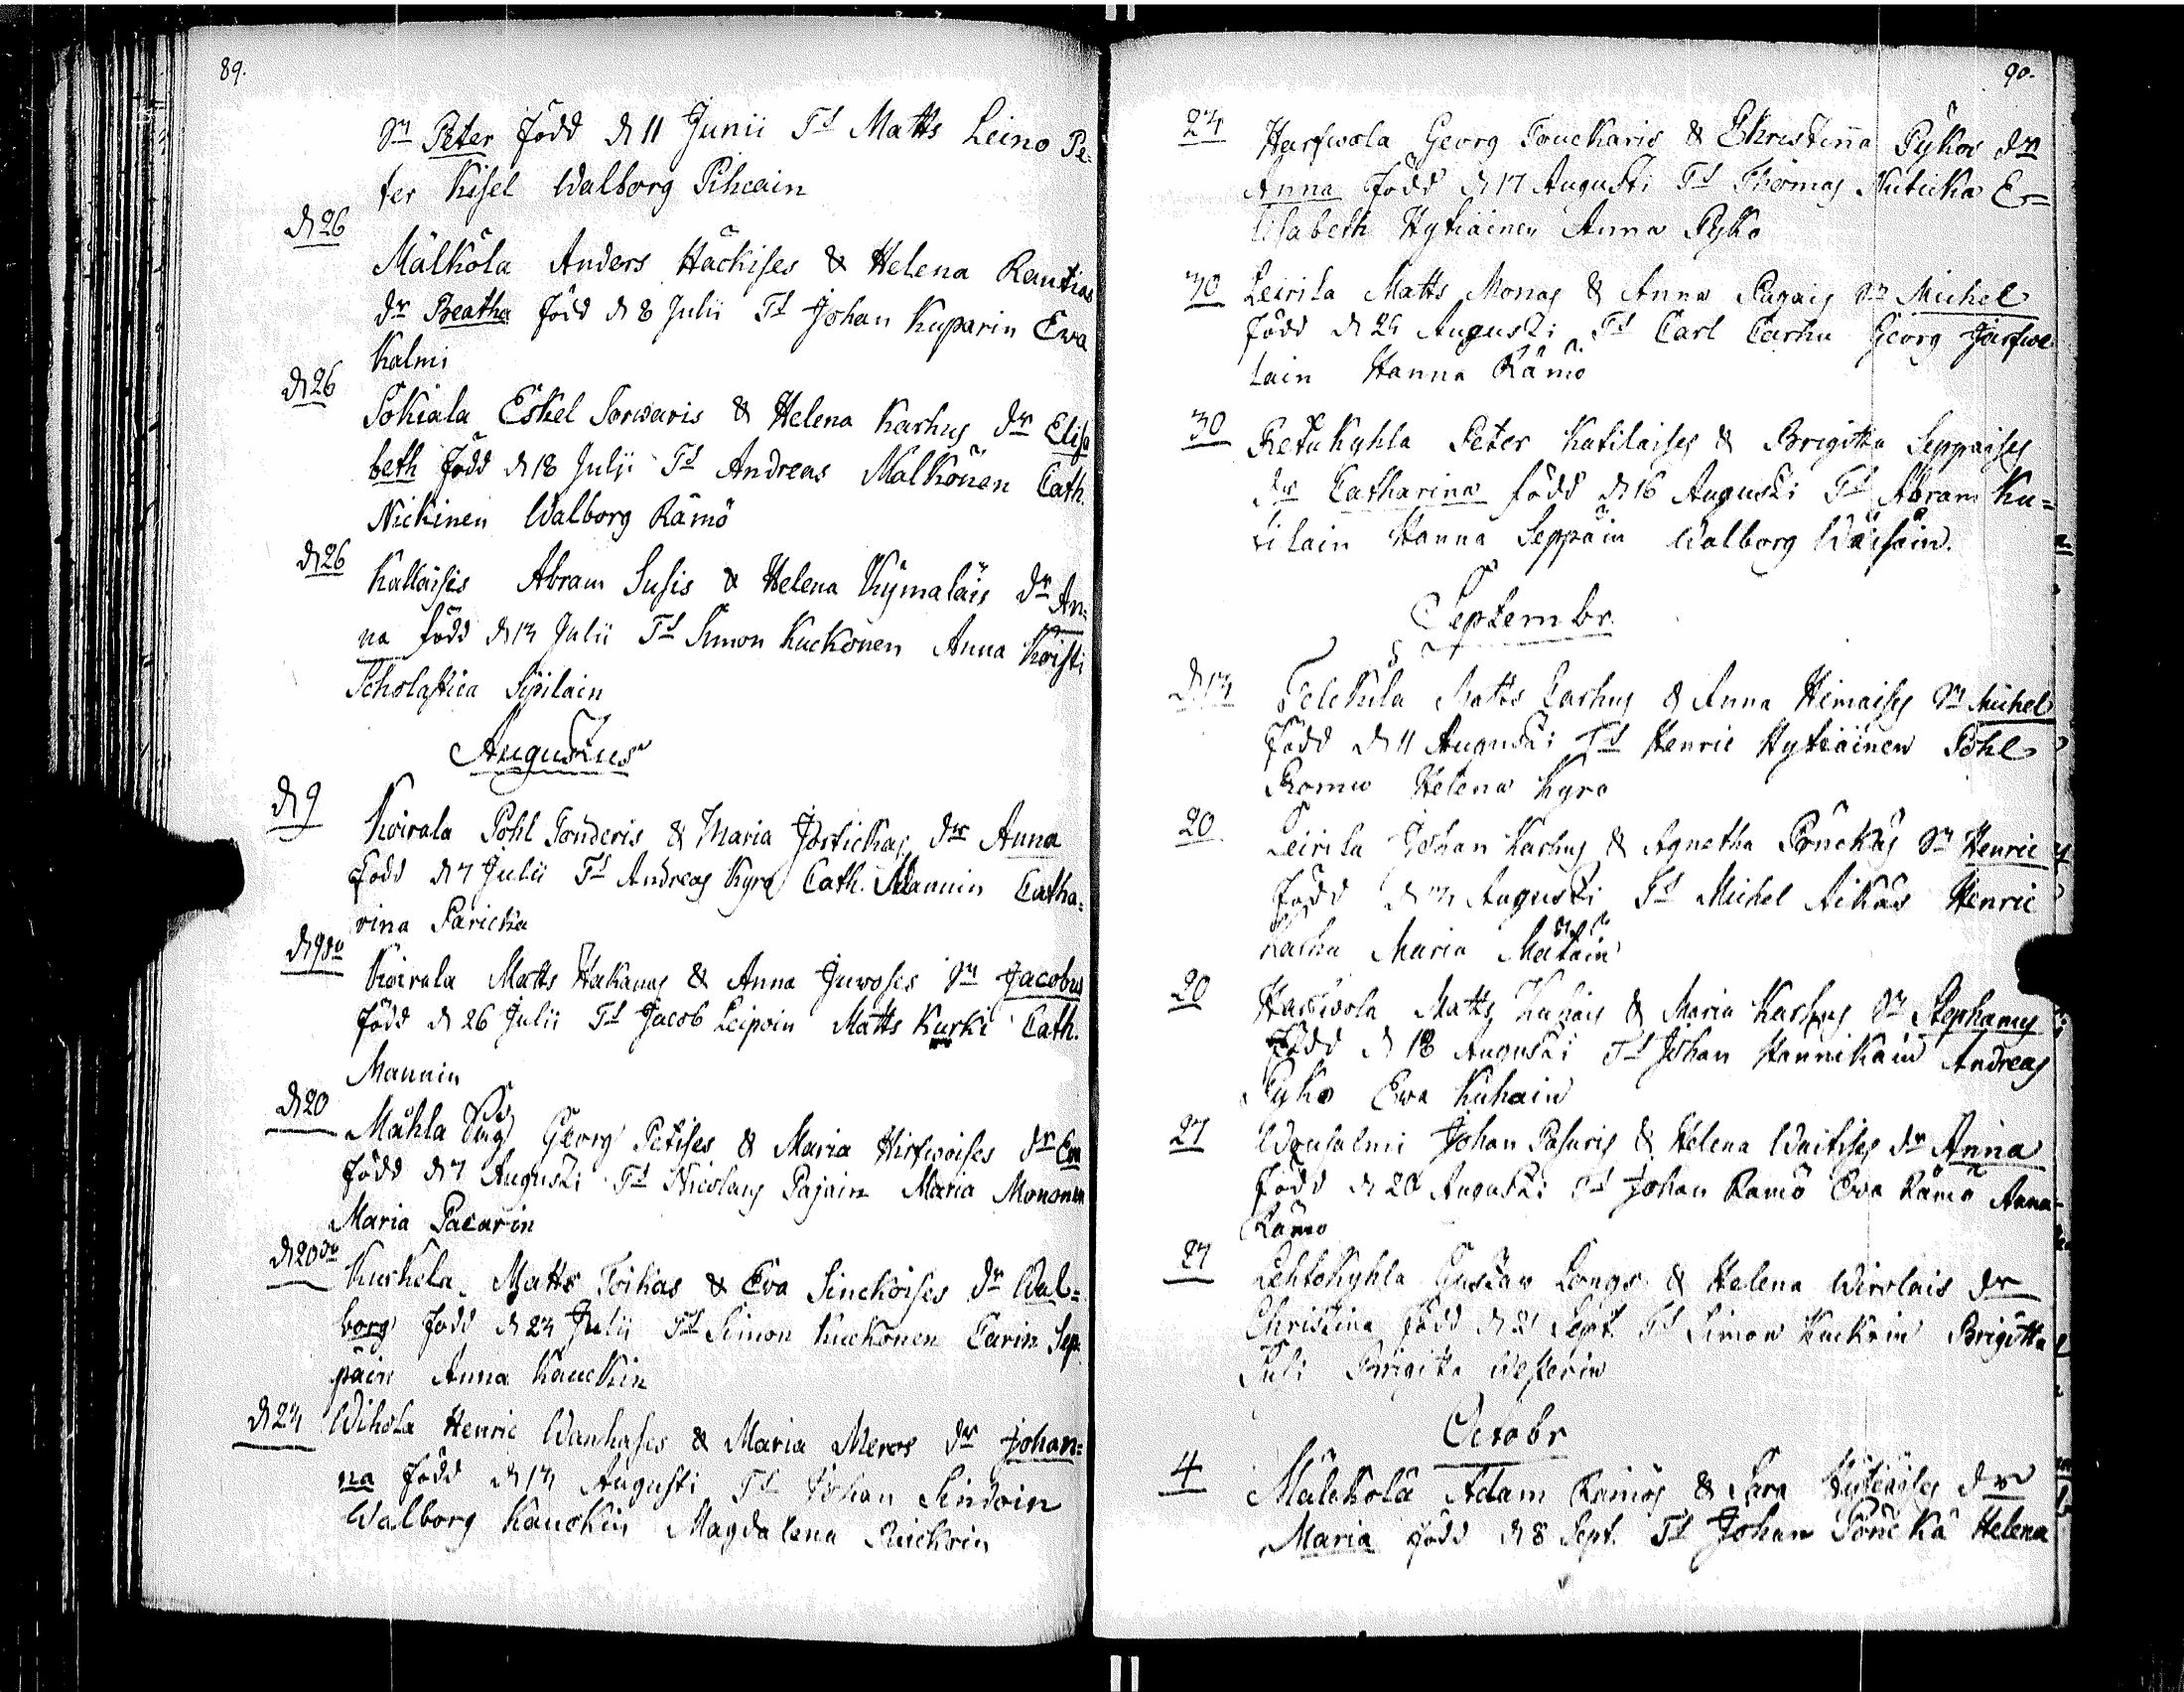 89.
Sn Peter född d 11 Junii Ts Matts Leino Pe-
ter Kisel Walborg Pihcain
d 26
Mälköla Anders Häckises & Helena Rautias
dr Beatha född d 8 Julii Ts Johan Kuparin Ewa
Kalmi
d 26
Sokiala Eskel Sorwaris & Helena Karhus dr Elisa
beth född d 18 Julii Ts Andreas Malkönen Cath.
Nickinen Walborg Rämö
d 26
Kallaisis Abram Susis & Helena Kÿmaläis dr An=
na född d 13 Julii Ts Simon Kuckonen Anna Koisti
Scholastica Sipilain
Augustus
d 9
Koirala Pohl Tonderis & Maria Jostickas dr Anna
född d 7 Julii Ts Andreas Kyrö Cath. Mannin Catha=
rina Paricka
d 9 do
Koirala Matts Hakanas & Anna Juwoses Sn Jacobus
född d 26 Julii Ts Jacob Leipoin Matts Kurki Cath.
Mannin
d 20
Mähla Georg Petises & Maria Hirfwoises dr Eva
född d 7 Augusti Ts Nicolaus Pajain Maria Mononen
Maria Pacarin
d 20 do
Kurkela Matts Toikas & Eva Sinckoises dr Wal=
borg född d 23 Julii Ts Simon Kuckonen Carin Sep
päin Anna Kauckin
d 23 Wihola Henric Wanhases & Maria Meros dr Johan=
na född d 13 Augusti Ts Johan Sindoin
Walborg Kauckin Magdalena Ruickoin
90.
23 Harfwola Georg Touckaris & Christina Pykös dr
Anna född d 17 Augusti Ts Thomas Nuticka E=
lisabeth Hytiäinen Anna Pykö
30 Leirila Matts Monas & Anna Pagais Sn Michel
född d 24 Augusti Ts Carl Carhu Georg Jarfwe
lain Hanna Rämö
30 Retukyhla Peter Kutilaises & Brigitta Seppaises
dr Catharina född d 16 Augusti Ts Abram Ku=
tilain Hanna Seppäin Walborg Wäisäin.
Septembr.
d 13 Telckula Matts Carhus & Anna Himaises Sn Michel
född d 11 Augusti Ts Henric Hytiäinen Pohl
Romu Helena Kyrö
20 Leirila Johan Karhus & Agnetha Pönckäs Sn Henric
född d 3 Augusti Ts Michel Aikäs Henric
Karhu Maria Mätäin
20 Harfwola Matts Kuhais & Maria Karhus Sn Stephanus
född d 18 Augusti Ts Johan Hannikain Andreas
Pykö Ewa Kuhain
27 Wousalmi Johan Pasuris & Helena Waitises dr Anna
född d 20 Augusti Ts Johan Rämö Eva Rämö Anna
Rämö
27 Lehtokyhla Gustav Longs & Helena Wirolais dr
Christina född d 21 Sept. Ts Simon Kuckoin Brigitta
Susi Brigitta Westerin
Octobr
4 Mälckölä Adam Rämös & Sara Hytiäises dr
Maria född d 8 Sept. Ts Johan Pönckä Helena